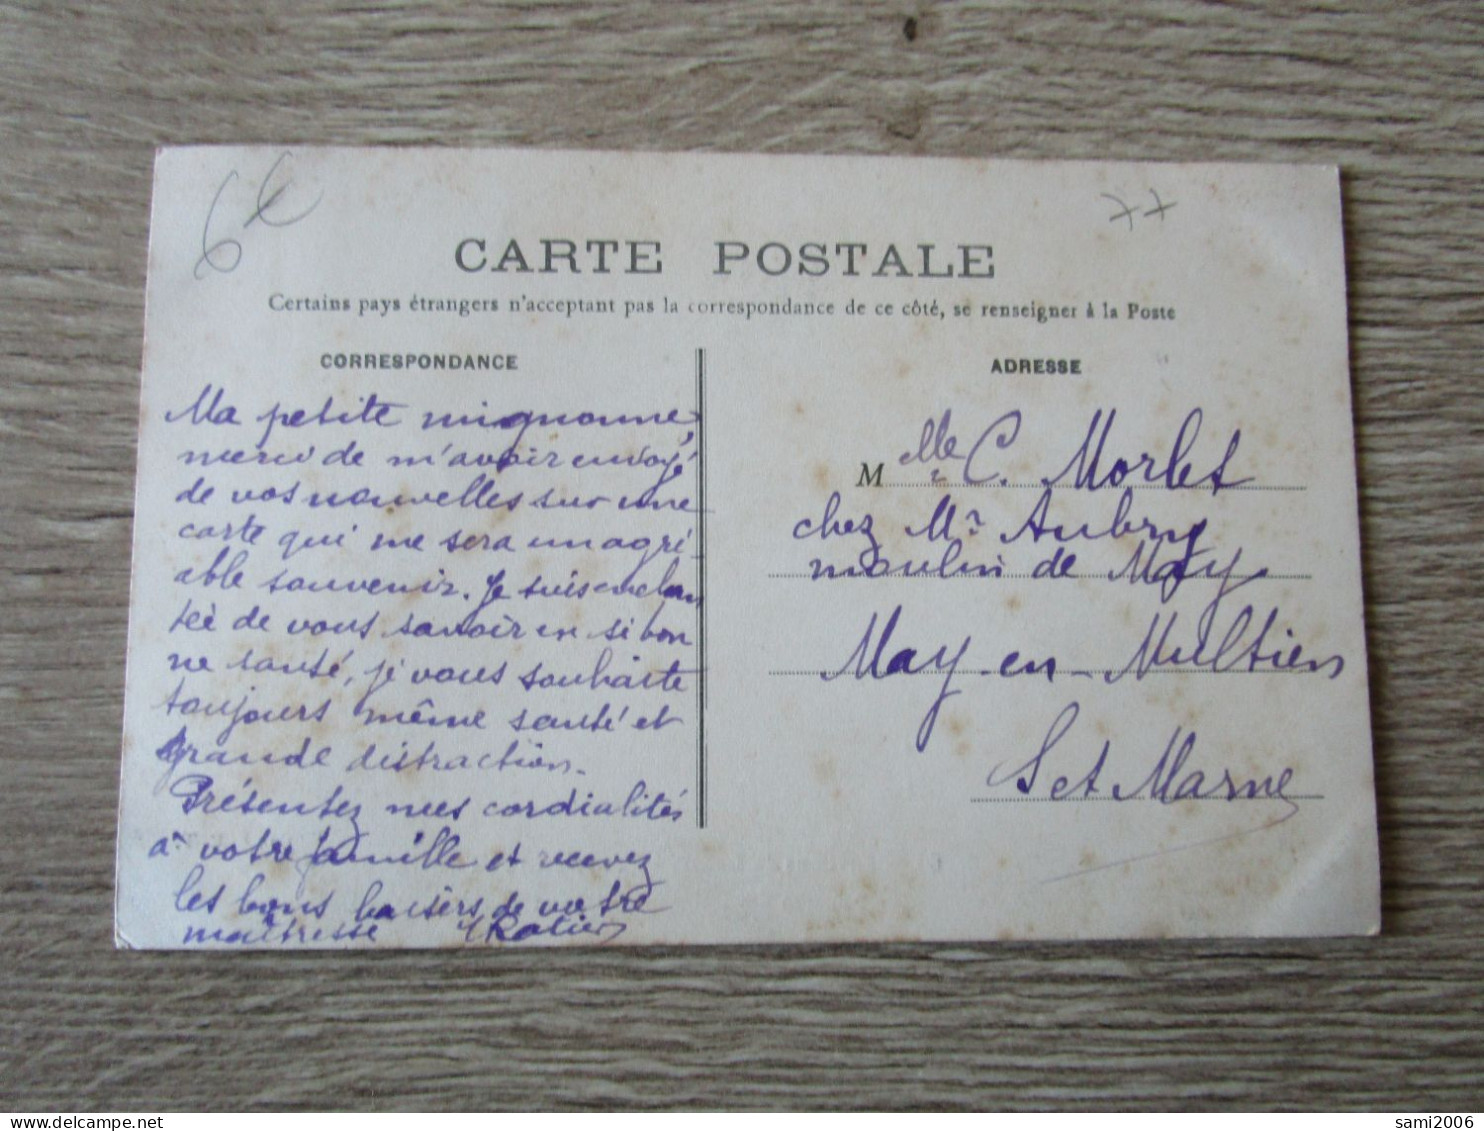 6€
77
CARTE POSTALE
Certains pays étrangers n'acceptant pas la correspondance de ce côté, se renseigner à la Poste
CORRESPONDANCE
Ma petite mignonne,
merci de m'avoir envoyé
de vos nouvelles sur une
carte qui me sera un agré-
able souvenir. Je suis enchan
teé de vous savoir en si bon
ne santé, je vous souhaite
toujours même santé et
grande distraction.
Présentez mes cordialités
à votre famille et recevez
les bons baisers de votre
maîtresse Ratier
ADRESSE
M elle C. Morlet
chez Mr Aubry
moulin de May
May-en-Multien
S et Marne
sami2006